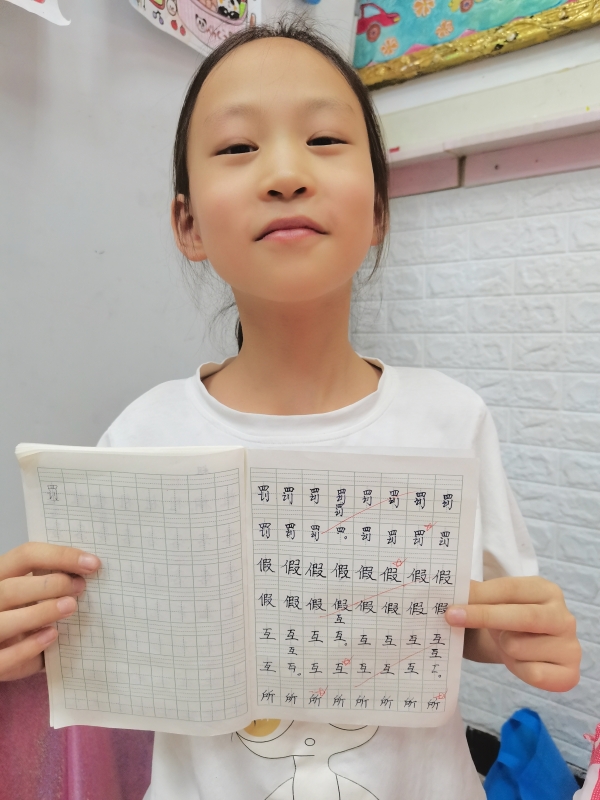 罚
罚罚罚罚罚罚罚罚
罚罚罚罚罚罚罚
假假假假假假假假
假假假假假假假假
互互互互互互互互
互互互互互互
所所所所所所所所